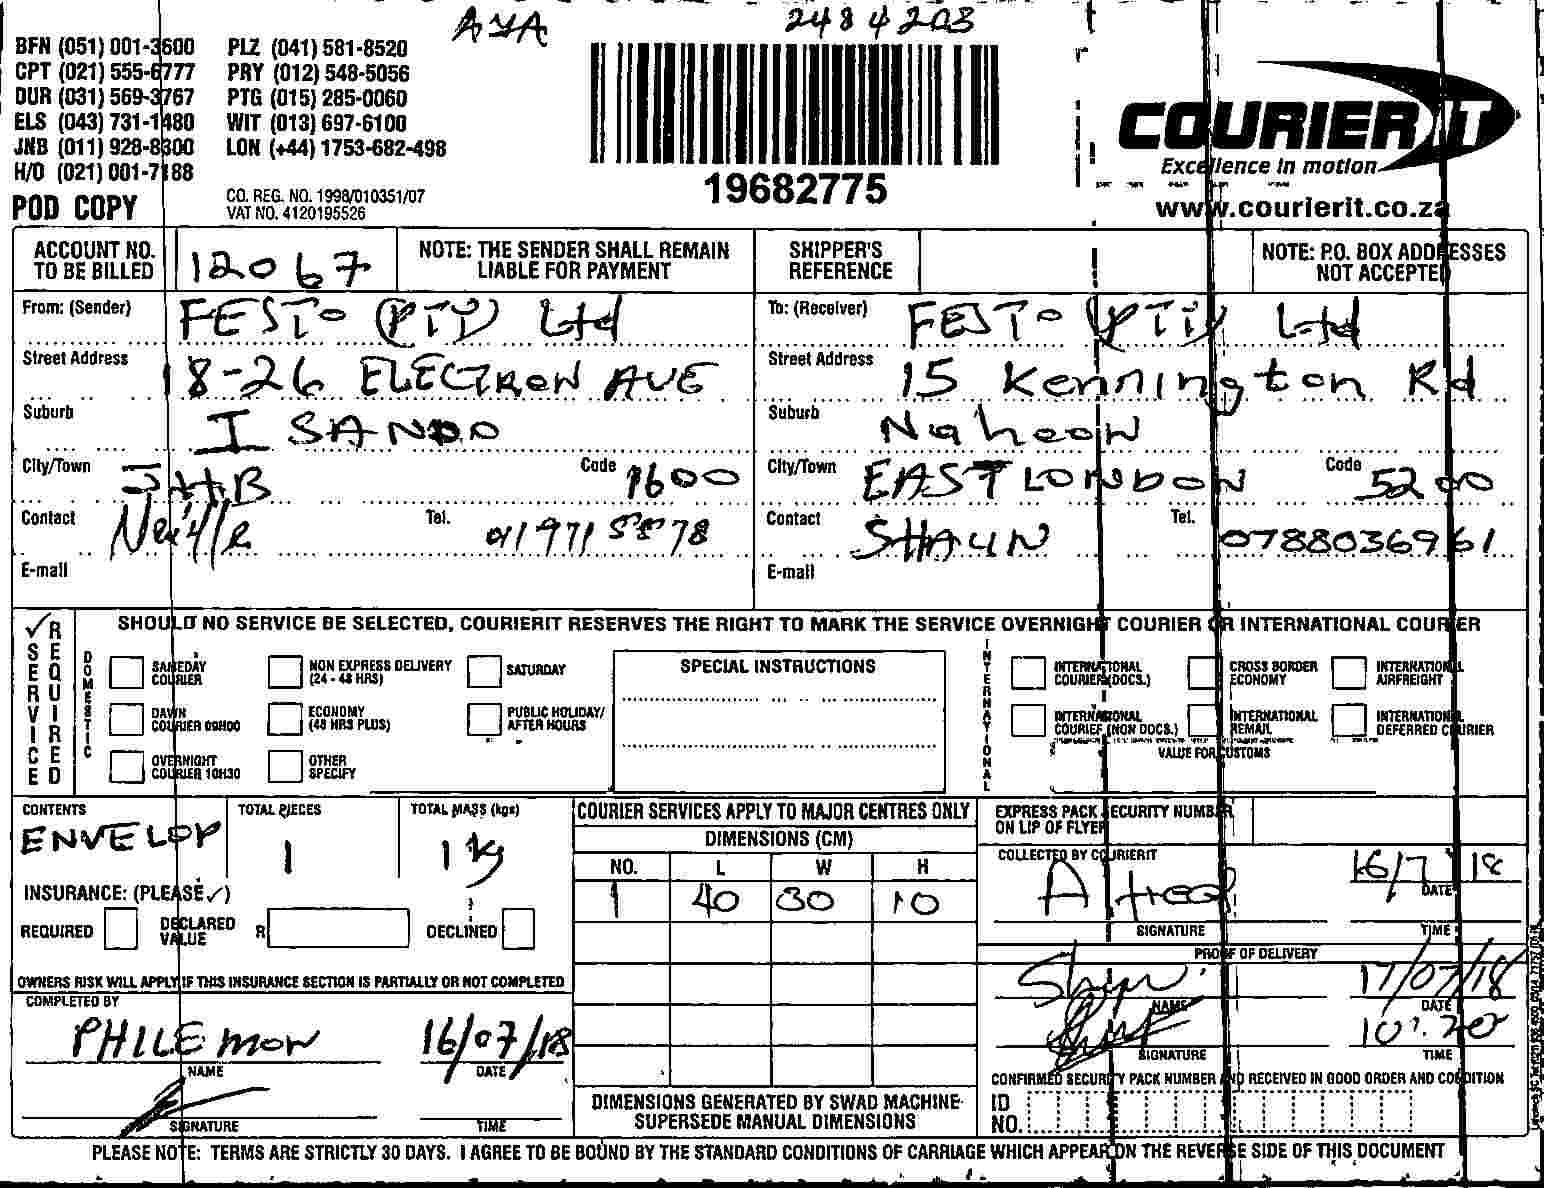 AYA 2484203
BFN (051) 001-3600 PLZ (041) 581-8520
CPT (021) 555-6777 PRY (012) 548-5056
DUR (031) 569-3767 PTG (015) 285-0060
ELS (043) 731-1480 WIT (013) 697-6100
JNB (011) 928-8300 LON (+44) 1753-682-498
H/O (021) 001-7188
POD COPY
CO. REG. NO. 1998/010351/07
VAT NO. 4120195526
19682775
COURIER IT
Excellence in motion
www.courierit.co.za
ACCOUNT NO. TO BE BILLED 12067
NOTE: THE SENDER SHALL REMAIN LIABLE FOR PAYMENT
SHIPPER'S REFERENCE
NOTE: P.O. BOX ADDRESSES NOT ACCEPTED
From: (Sender) FESTO (PTY) Ltd
Street Address 18-26 ELECTRON AVE
Suburb ISANDO
City/Town JHB Code 1600
Contact Neville Tel. 0119715578
E-mail
To: (Receiver) FESTO (PTY) Ltd
Street Address 15 Kennington Rd
Suburb Nahoon
City/Town EAST LONDON Code 5200
Contact SHAUN Tel. 0788036961
E-mail
✓ SERVICE REQUIRED
SHOULD NO SERVICE BE SELECTED, COURIERIT RESERVES THE RIGHT TO MARK THE SERVICE OVERNIGHT COURIER OR INTERNATIONAL COURIER
DOMESTIC
SAMEDAY COURIER
NON EXPRESS DELIVERY (24 - 48 HRS)
SATURDAY
DAWN COURIER 09H00
ECONOMY (48 HRS PLUS)
PUBLIC HOLIDAY/ AFTER HOURS
OVERNIGHT COURIER 10H30
OTHER SPECIFY
SPECIAL INSTRUCTIONS
INTERNATIONAL
INTERNATIONAL COURIER (DOCS.)
CROSS BORDER ECONOMY
INTERNATIONAL AIRFREIGHT
INTERNATIONAL COURIER (NON DOCS.)
INTERNATIONAL REMAIL
INTERNATIONAL DEFERRED COURIER
VALUE FOR CUSTOMS
CONTENTS ENVELOP
TOTAL PIECES 1
TOTAL MASS (kgs) 1 kg
INSURANCE: (PLEASE ✓)
REQUIRED DECLARED VALUE R DECLINED
OWNERS RISK WILL APPLY IF THIS INSURANCE SECTION IS PARTIALLY OR NOT COMPLETED
COMPLETED BY
PHILEMON 16/07/18
NAME DATE
SIGNATURE TIME
COURIER SERVICES APPLY TO MAJOR CENTRES ONLY
DIMENSIONS (CM)
NO. L W H
1 40 30 10
DIMENSIONS GENERATED BY SWAD MACHINE SUPERSEDE MANUAL DIMENSIONS
EXPRESS PACK SECURITY NUMBER ON LIP OF FLYER
COLLECTED BY COURIERIT
16/7 18
DATE
SIGNATURE TIME
PROOF OF DELIVERY
17/07/18
NAME DATE
10:20
SIGNATURE TIME
CONFIRMED SECURITY PACK NUMBER AND RECEIVED IN GOOD ORDER AND CONDITION
ID NO.
PLEASE NOTE: TERMS ARE STRICTLY 30 DAYS. I AGREE TO BE BOUND BY THE STANDARD CONDITIONS OF CARRIAGE WHICH APPEAR ON THE REVERSE SIDE OF THIS DOCUMENT